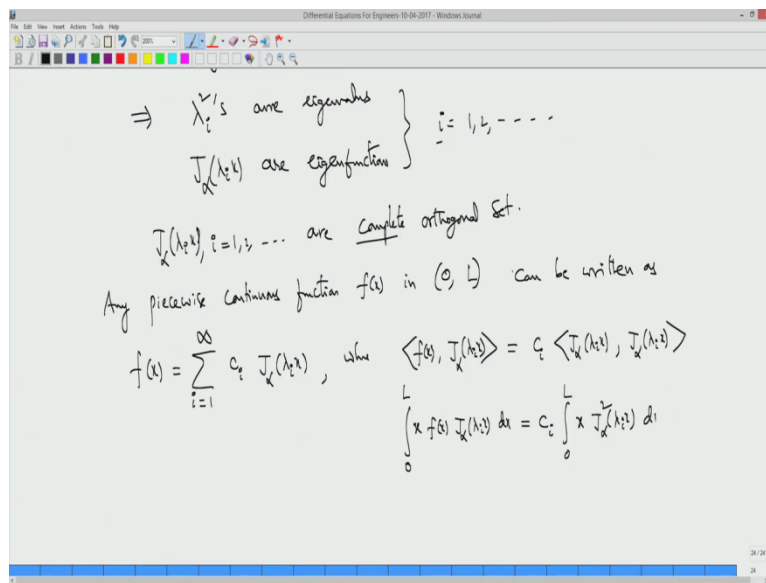 Differential Equations For Engineers-10-04-2017 - Windows Journal
File Edit View Insert Actions Tools Help
200%
B I
⇒ λᵢ²'s are eigenvalues
J_α(λᵢx) are eigenfunction } i = 1, 2, - - - -
J_α(λᵢx), i = 1, 2, --- are complete orthogonal set.
Any piecewise continuous function f(x) in (0, L) can be written as
f(x) = ∑_{i=1}^{∞} cᵢ J_α(λᵢx), whe ⟨f(x), J_α(λᵢx)⟩ = cᵢ ⟨J_α(λᵢx), J_α(λᵢx)⟩
∫_0^L x f(x) J_α(λᵢx) dx = cᵢ ∫_0^L x J_α²(λᵢx) d
24 / 24
24